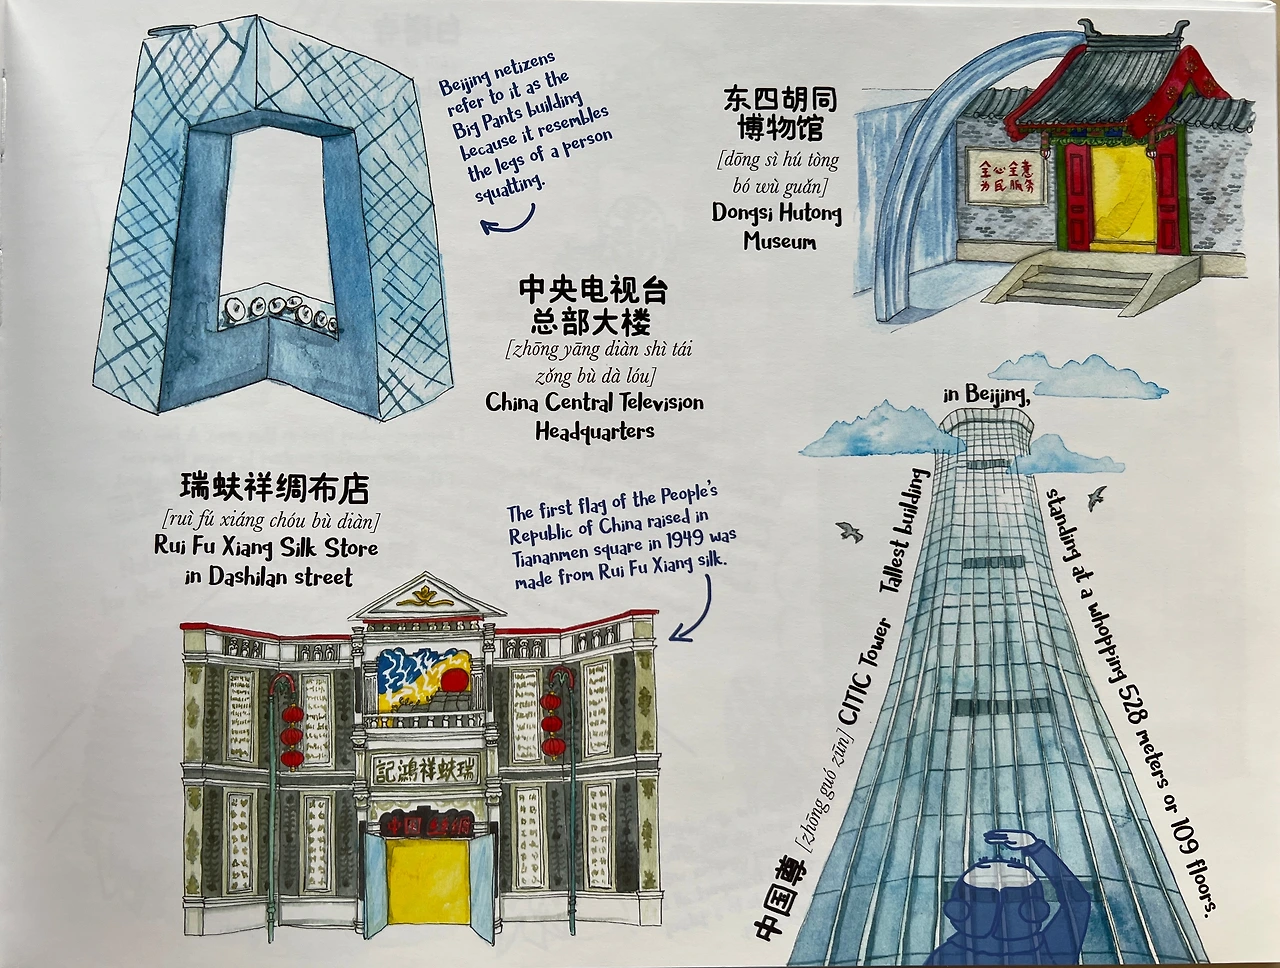 Beijing netizens
refer to it as the
Big Pants building
because it resembles
the legs of a person
squatting.
中央电视台
总部大楼
[zhōng yāng diàn shì tái
zǒng bù dà lóu]
China Central Television
Headquarters
东四胡同
博物馆
[dōng sì hú tòng
bó wù guǎn]
Dongsi Hutong
Museum
全心全意
为民服务
瑞蚨祥绸布店
[ruì fú xiáng chóu bù diàn]
Rui Fu Xiang Silk Store
in Dashilan street
The first flag of the People's
Republic of China raised in
Tiananmen square in 1949 was
made from Rui Fu Xiang silk.
記鴻祥蚨瑞
中国尊 [zhōng guó zūn] CITIC Tower Tallest building
in Beijing,
standing at a whopping 528 meters or 109 floors.